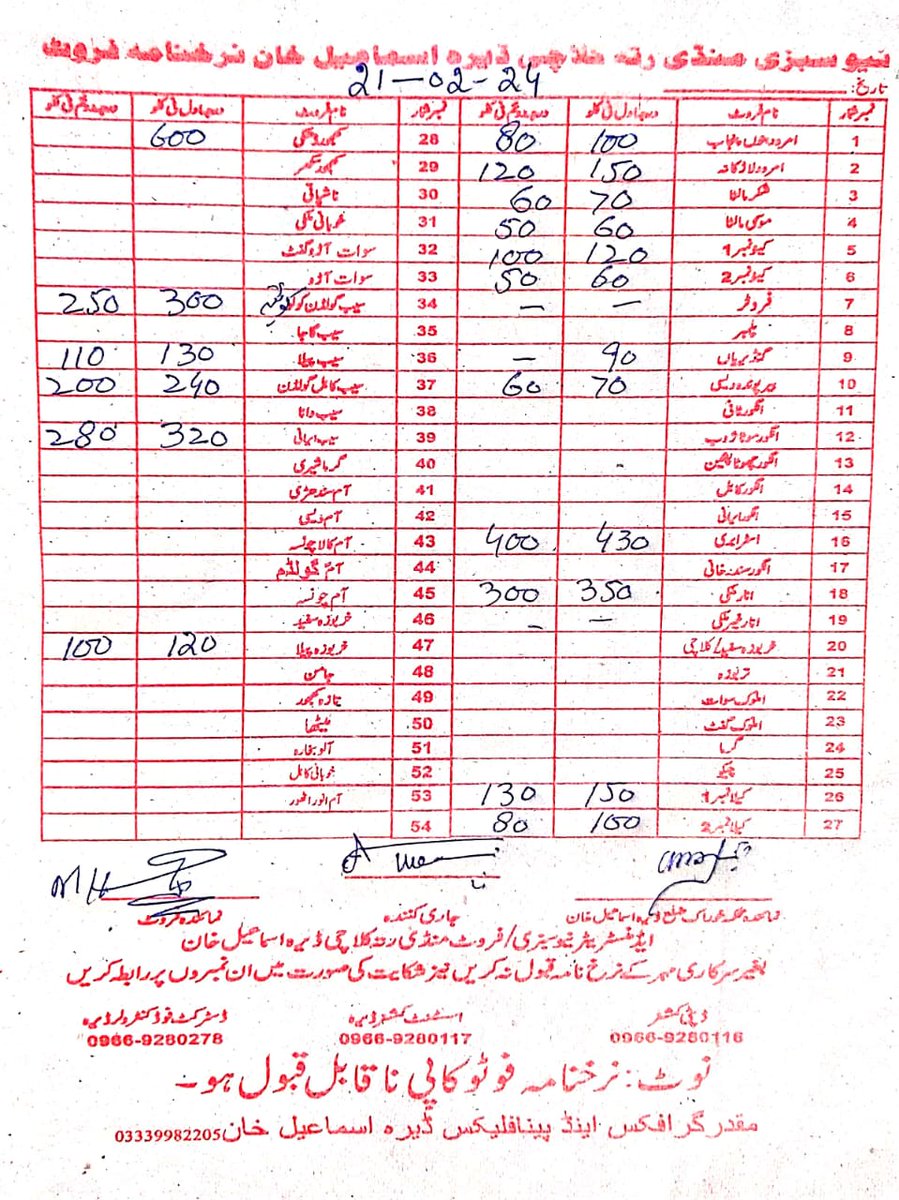 نیو سبزی منڈی رتہ کلاچی ڈیرہ اسماعیل خان نرخنامہ فروٹ
تاریخ: 21-02-24
نمبر شمار نام فروٹ درجہ اول فی کلو درجہ دوم فی کلو نمبر شمار نام فروٹ درجہ اول فی کلو درجہ دوم فی کلو
1 امرود 100 80 28 کھجور 600
2 امرود لاڑکانہ 150 120 29 کھجور
3 شکر مالٹا 70 60 30 ناشپاتی
4 موسمی مالٹا 60 50 31 خوبانی ملکی
5 کینو نمبر 1 120 100 32 سوات آڑو گفٹ
6 کینو نمبر 2 60 50 33 سوات آڑو
7 فروٹر – – 34 سیب گولڈن 300 250
8 35 سیب گاجا
9 گنڈیریاں 90 – 36 سیب پیلا 130 110
10 بیر پیوندہ دیسی 70 60 37 سیب کابل گولڈن 240 200
11 انگور ٹافی 38 سیب
12 انگور ژوب 39 سیب ایرانی 320 280
13 انگور 40 گرما شیری
14 انگور کابل 41 آم سندھڑی
15 انگور ایرانی 42 آم دیسی
16 اسٹرابری 430 400 43 آم کالا چونسہ
17 انگور سندرخانی 44 آم گولڈم
18 انار ملکی 350 300 45 آم چونسہ
19 انار غیر ملکی – – 46 خربوزہ سفید
20 خربوزہ سفید/کلاچی 47 خربوزہ پیلا 120 100
21 تربوزہ 48 جامن
22 املوک سوات 49 تازہ کھجور
23 املوک گفٹ 50 میٹھا
24 گرما 51 آلو بخارہ
25 چیکو 52 خوبانی کابل
26 کیلا نمبر 1 150 130 53 آم انور اٹھور
27 کیلا نمبر 2 100 80 54
نمائندہ محکمہ خوراک ضلع ڈیرہ اسماعیل خان جاری کنندہ نمائندہ فروٹ
ایڈمنسٹریٹر نیو سبزی/فروٹ منڈی رتہ کلاچی ڈیرہ اسماعیل خان
بغیر سرکاری مہر کے نرخ نامہ قبول نہ کریں نیز شکایت کی صورت میں ان نمبروں پر رابطہ کریں
ڈپٹی کمشنر اسسٹنٹ کمشنر ڈیرہ ڈسٹرکٹ فوڈ کنٹرولر ڈیرہ
0966-9280116 0966-9280117 0966-9280278
نوٹ: نرخنامہ فوٹو کاپی نا قابل قبول ہو۔
مقدر گرافکس اینڈ پینافلیکس ڈیرہ اسماعیل خان 03339982205